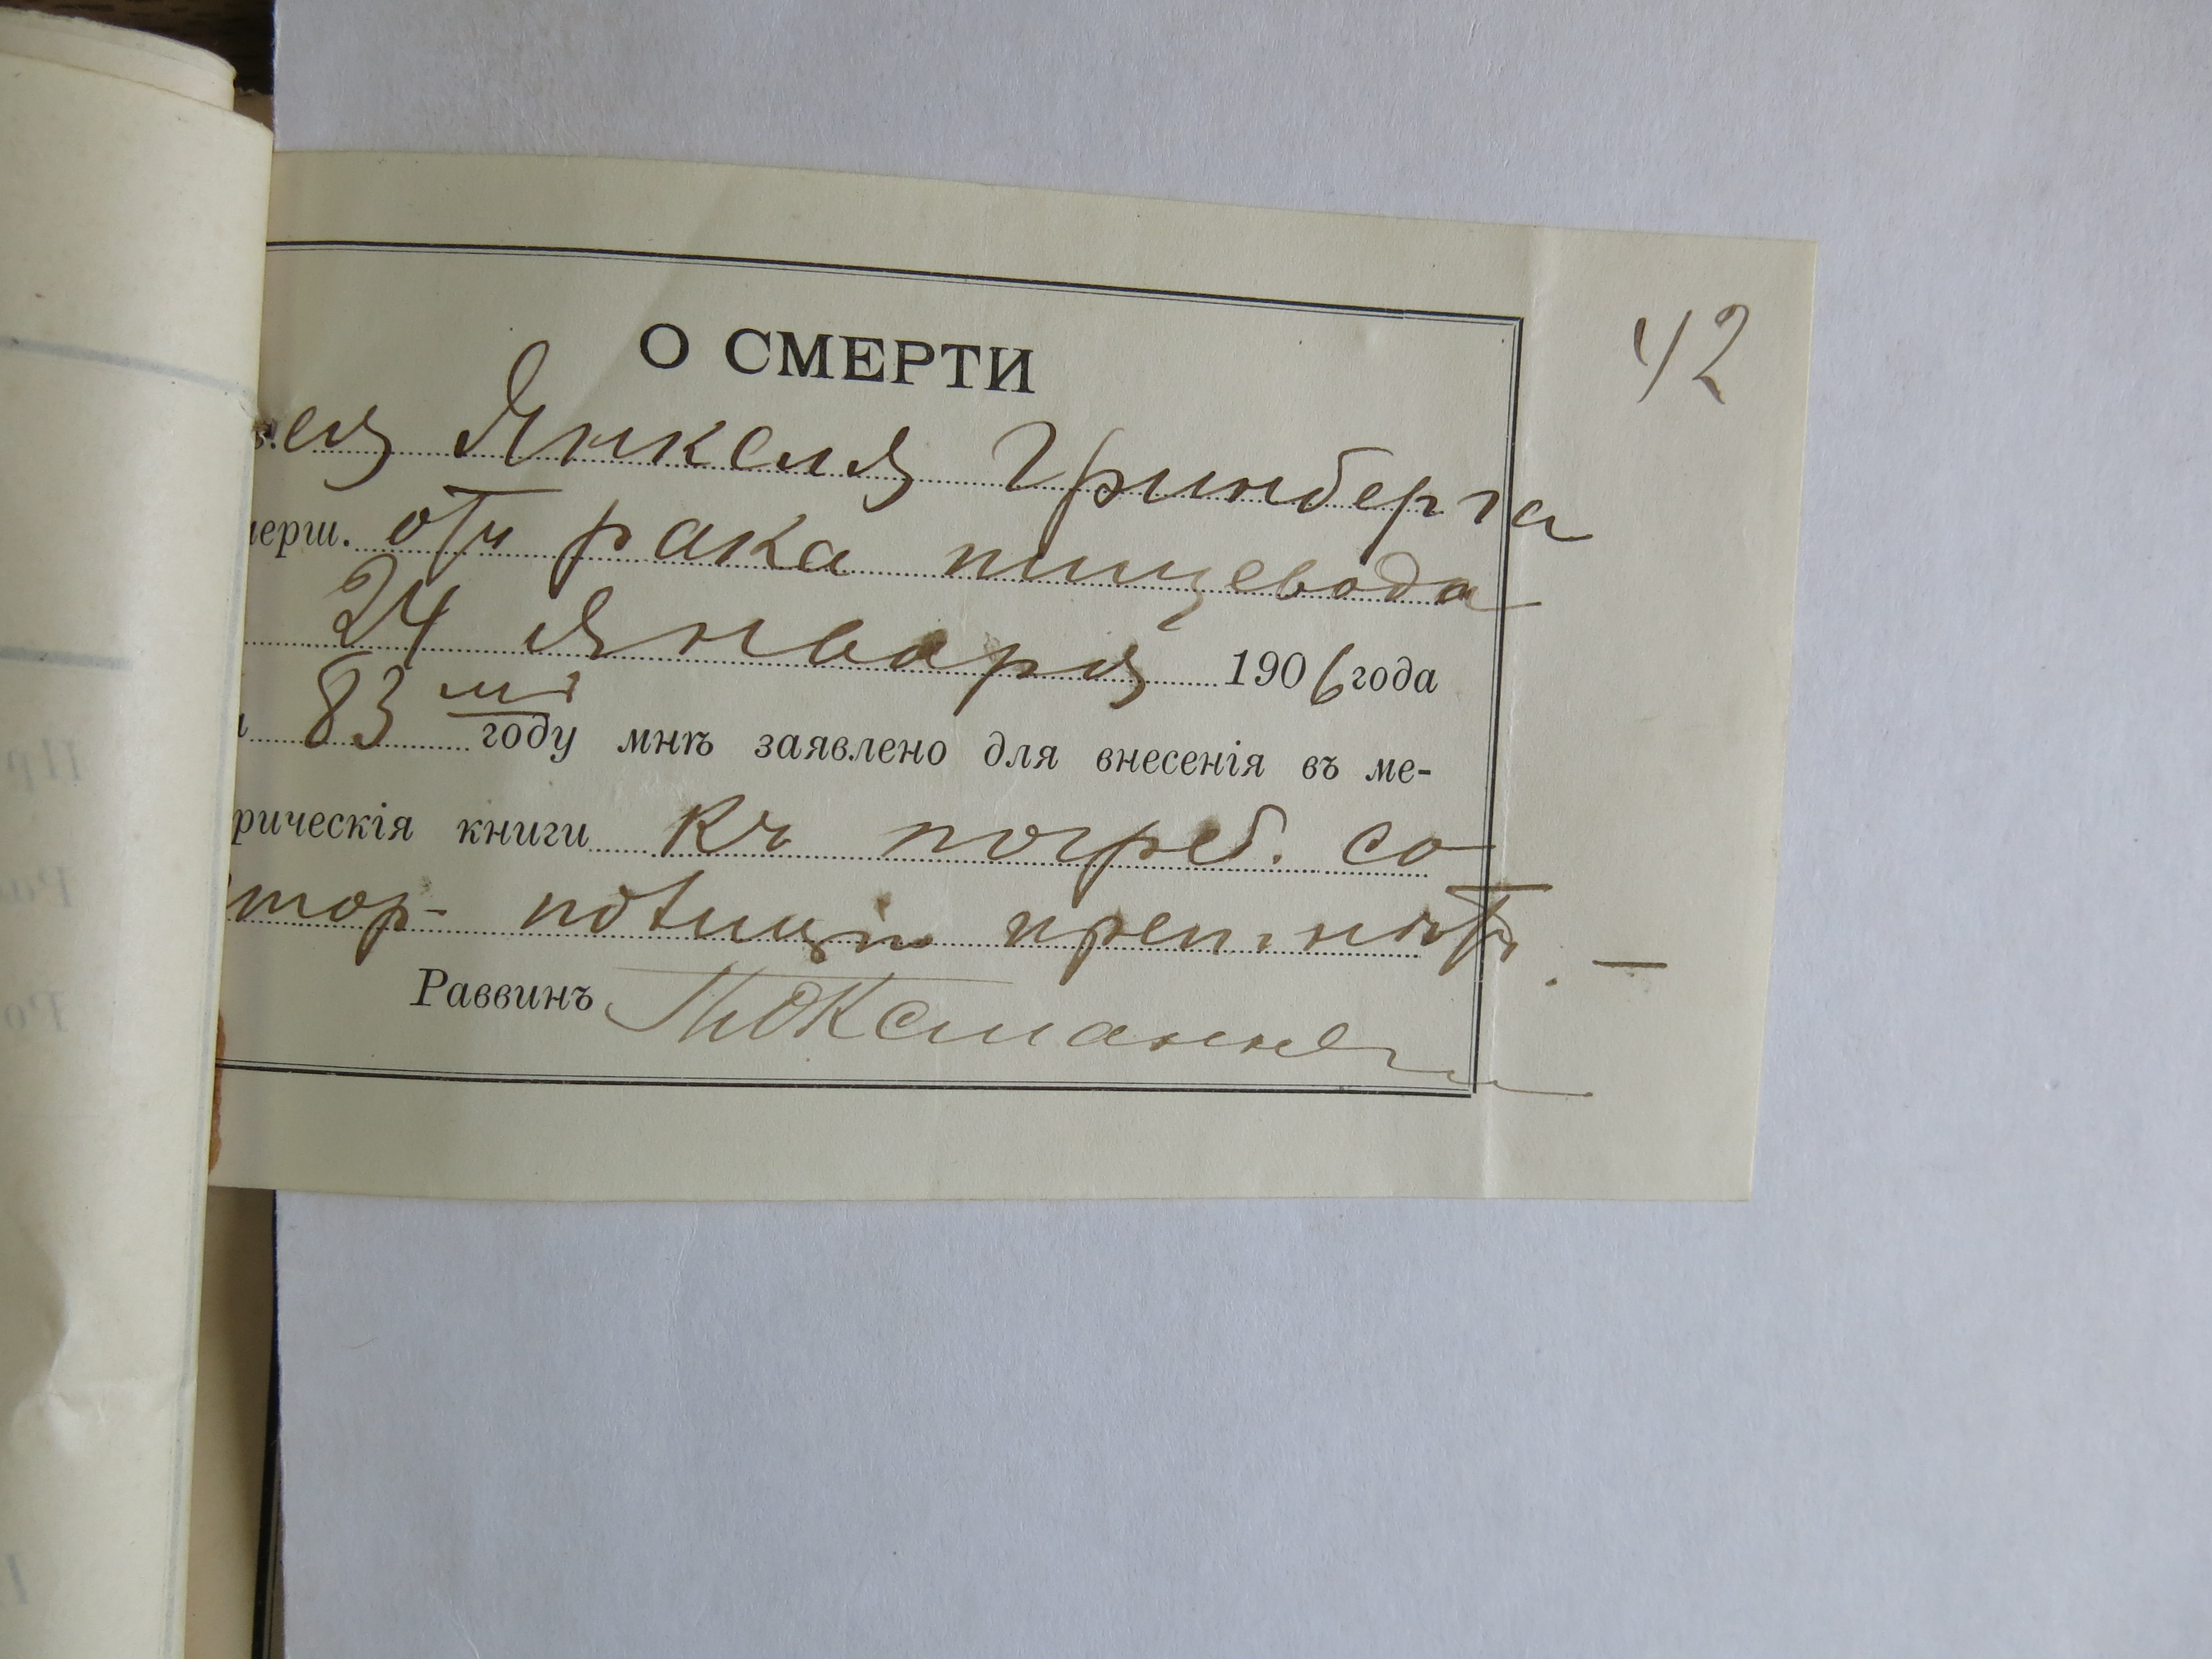 42
О СМЕРТИ
ея Янкеля Гринберга
мерш. отъ рака пищевода
24 Января 1906 года
83 ми году мнѣ заявлено для внесенія въ ме-
рическія книги Къ погреб. со
стор. полиціи преп. нѣтъ. —
Раввинъ